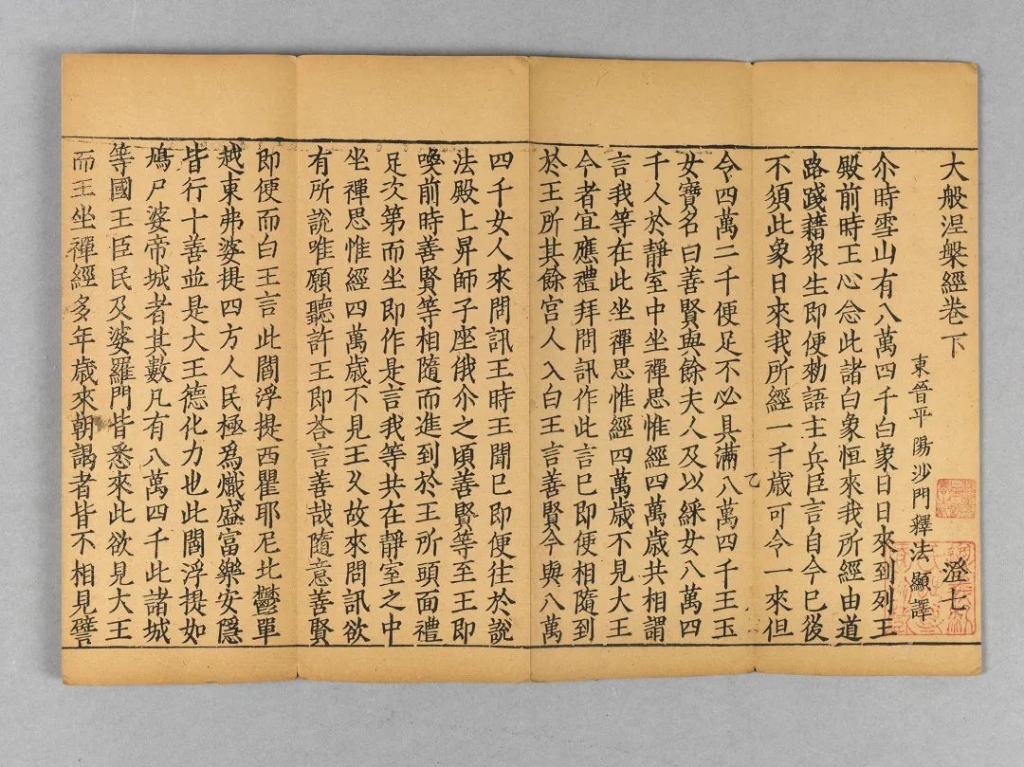 大般涅槃經卷下 澄七
東晉平陽沙門釋法顯譯
尒時雪山有八萬四千白象日日來到列王
殿前時王心念此諸白象恒來我所經由道
路踐藉衆生即便勑語主兵臣言自今已後
不須此象日來我所經一千歲可令一來但
令四萬二千便足不必具滿八萬四千王玉
女寶名曰善賢與餘夫人及以綵女八萬四
千人於靜室中坐禪思惟經四萬歲共相謂
言我等在此坐禪思惟經四萬歲不見大王
今者宜應禮拜問訊作此言已即便相隨到
於王所其餘宮人入白王言善賢今與八萬
四千女人來問訊王時王聞已即便往於說
法殿上昇師子座俄尒之頃善賢等至王即
喚前時善賢等相隨而進到於王所頭面禮
足次第而坐即作是言我等共在靜室之中
坐禪思惟經四萬歲不見王久故來問訊欲
有所說唯願聽許王即荅言善哉隨意善賢
即便而白王言此閻浮提西瞿耶尼北鬱單
越東弗婆提四方人民極為熾盛富樂安隱
皆行十善並是大王德化力也此閻浮提如
鳩尸婆帝城者其數凡有八萬四千此諸城
等國王臣民及婆羅門皆悉來此欲見大王
而王坐禪經多年歲來朝謁者皆不相見譬